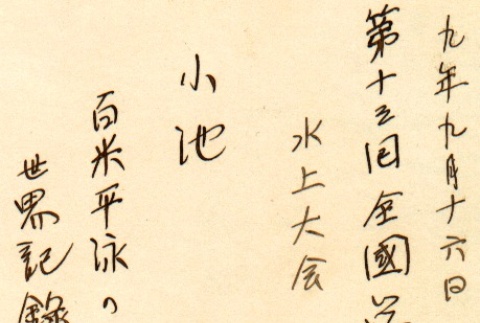 九年九月十六日
第十三回全國学
水上大会
小池
百米平泳の
世界記錄